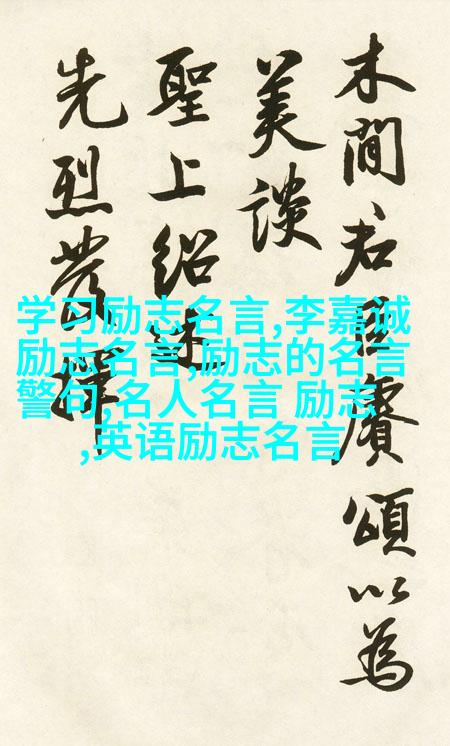 木間君臣賡頌以為
美談
聖上紹述
先烈發揮
学习励志名言,李嘉诚
励志名言,励志的名言
警句,名人名言 励志
,英语励志名言